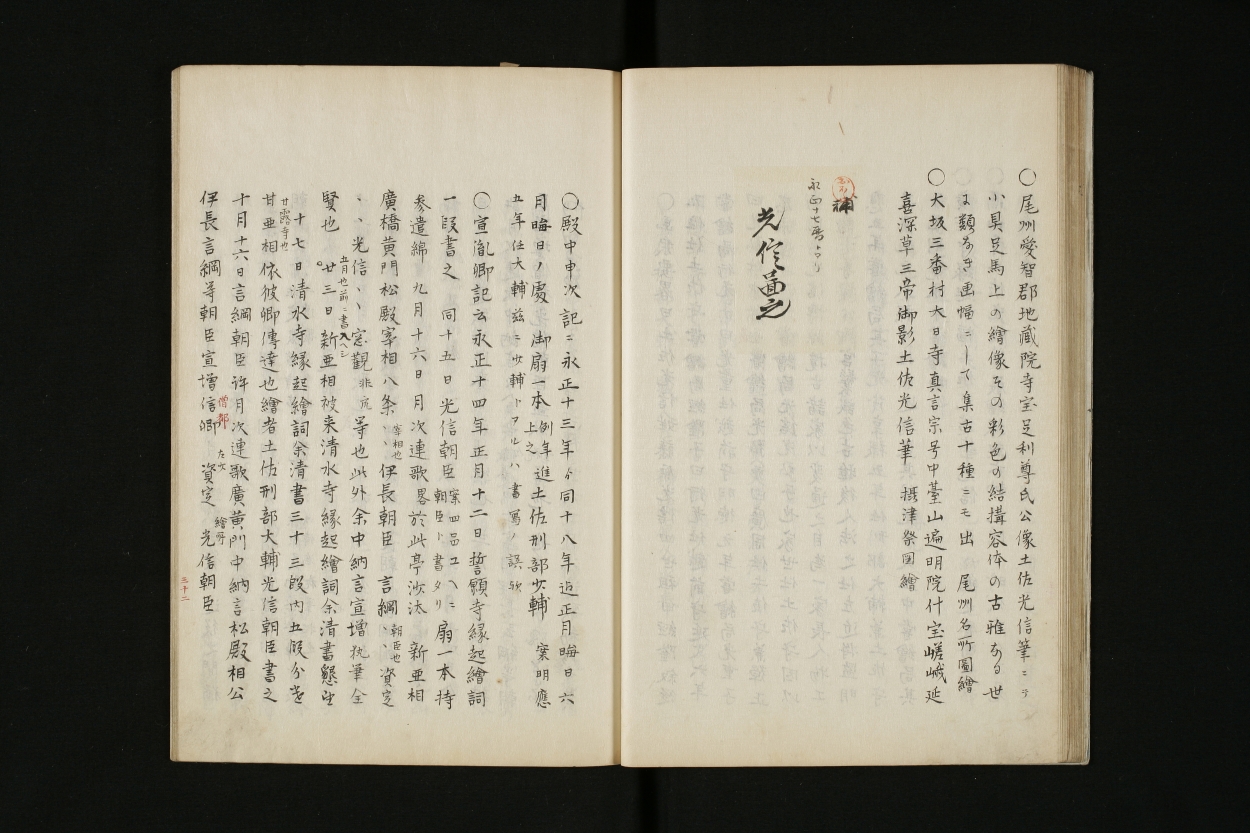 〇尾州愛智郡地蔵院寺宝足利尊氏公像土佐光信筆ニテ
小具足馬上の繪像その彩色の結搆容体の古雅なる世
に類なき画幅ニして集古十種ニモ出 尾州名所圖繪
〇大坂三番村大日寺真言宗号中臺山遍明院什宝嵯峨延
喜深草三帝御影土佐光信筆 摂津祭圖繪
補
永正十七暦
光信圖之
〇殿中申次記ニ永正十三年ゟ同十八年迠正月晦日六
月晦日ノ處御扇一本例年上之進土佐刑部少輔 案明應
五年任大輔茲ニ少輔トアルハ書寫ノ誤欤
〇宣胤卿記云永正十四年正月十二日誓願寺緣起繪詞
一段書之 同十五日光信朝臣案四品ユヘニ朝臣ト書タリ扇一本持
参遣綿 九月十六日月次連歌畧於此亭沙汰 新亜相
廣橋黄門松殿宰相八条、、宰相也伊長朝臣 言綱、、朝臣也資定
、、光信、、宗觀非 等也此外余中納言宣増執筆全
賢也 廿三日新亜相被来清水寺緣起繪詞余清書懇望
五月也前ニ書入ヘシ
十七日清水寺緣起繪詞余清書三十三段内五段分遣
甘露寺也
甘亜相依彼卿傳達也繪者土佐刑部大輔光信朝臣書之
十月十六日言綱朝臣許月次連歌廣黄門中納言松殿相公
伊長言綱等朝臣宣増僧都信卿 資定左少 光信朝臣繪所
三十二